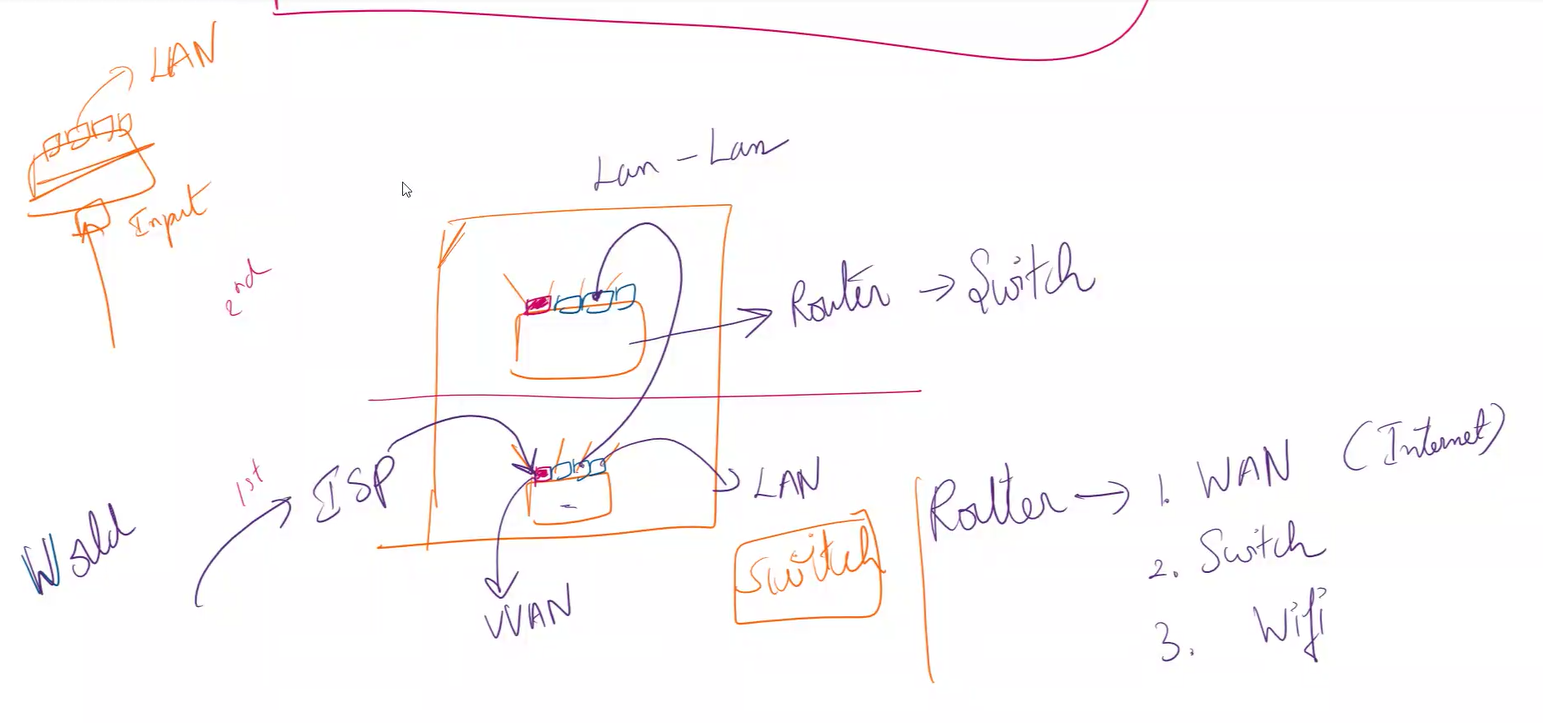 LAN
Input
Lan - Lan
2nd
Router → Switch
1st
World
ISP
LAN
WAN
Switch
RoUter → 1. WAN (Internet)
2. Switch
3. Wifi